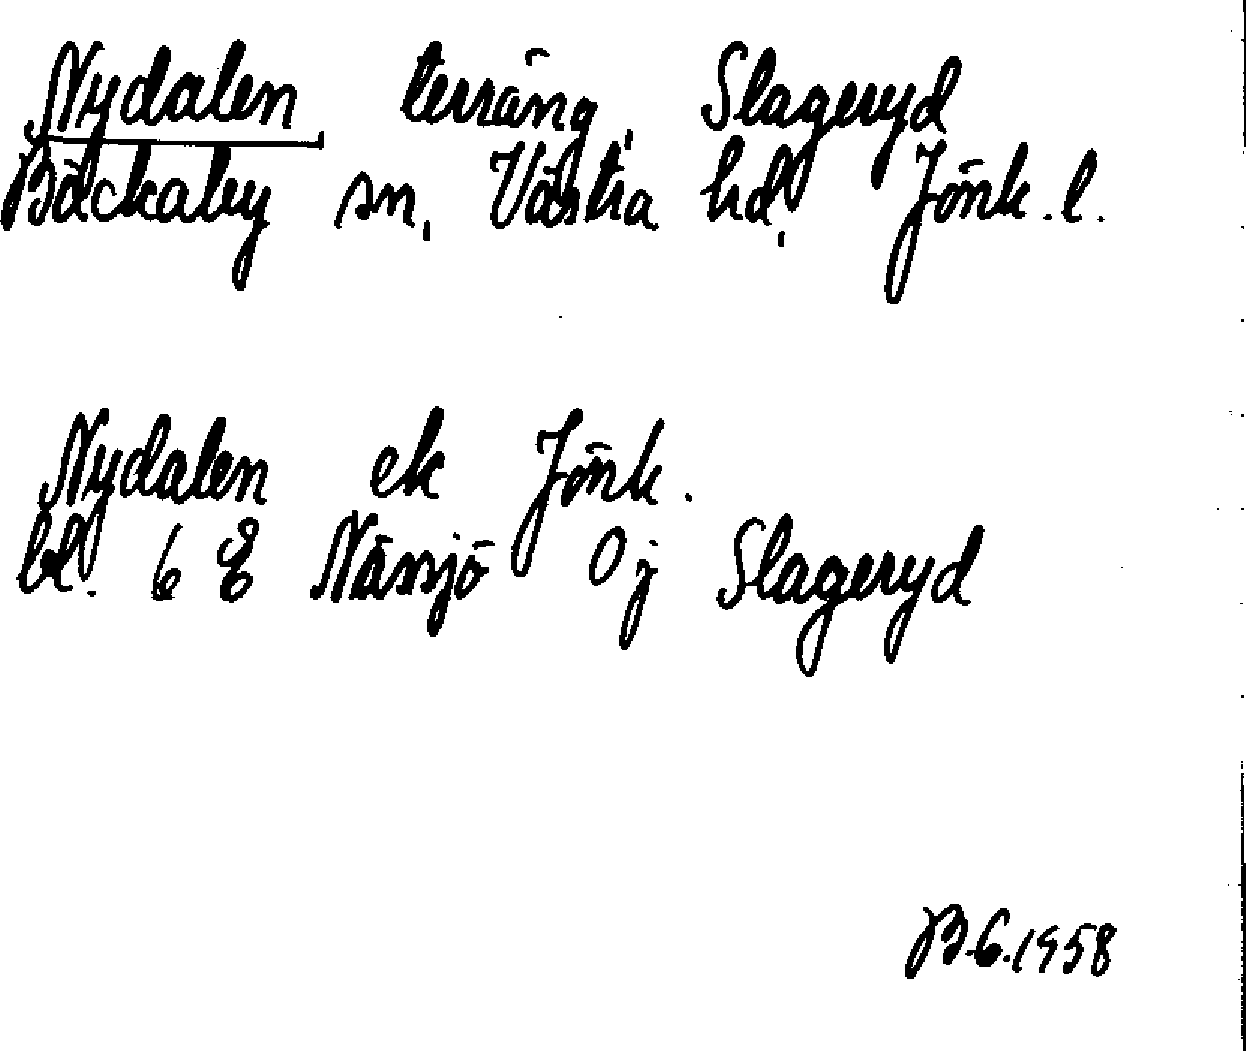 Nydalen, terräng, Slageryd
Bäckaby sn, Västra hd, Jönk. l.
Nydalen ek Jönk.
bl. 6 E Nässjö 0 j Slageryd
B.G. 1958